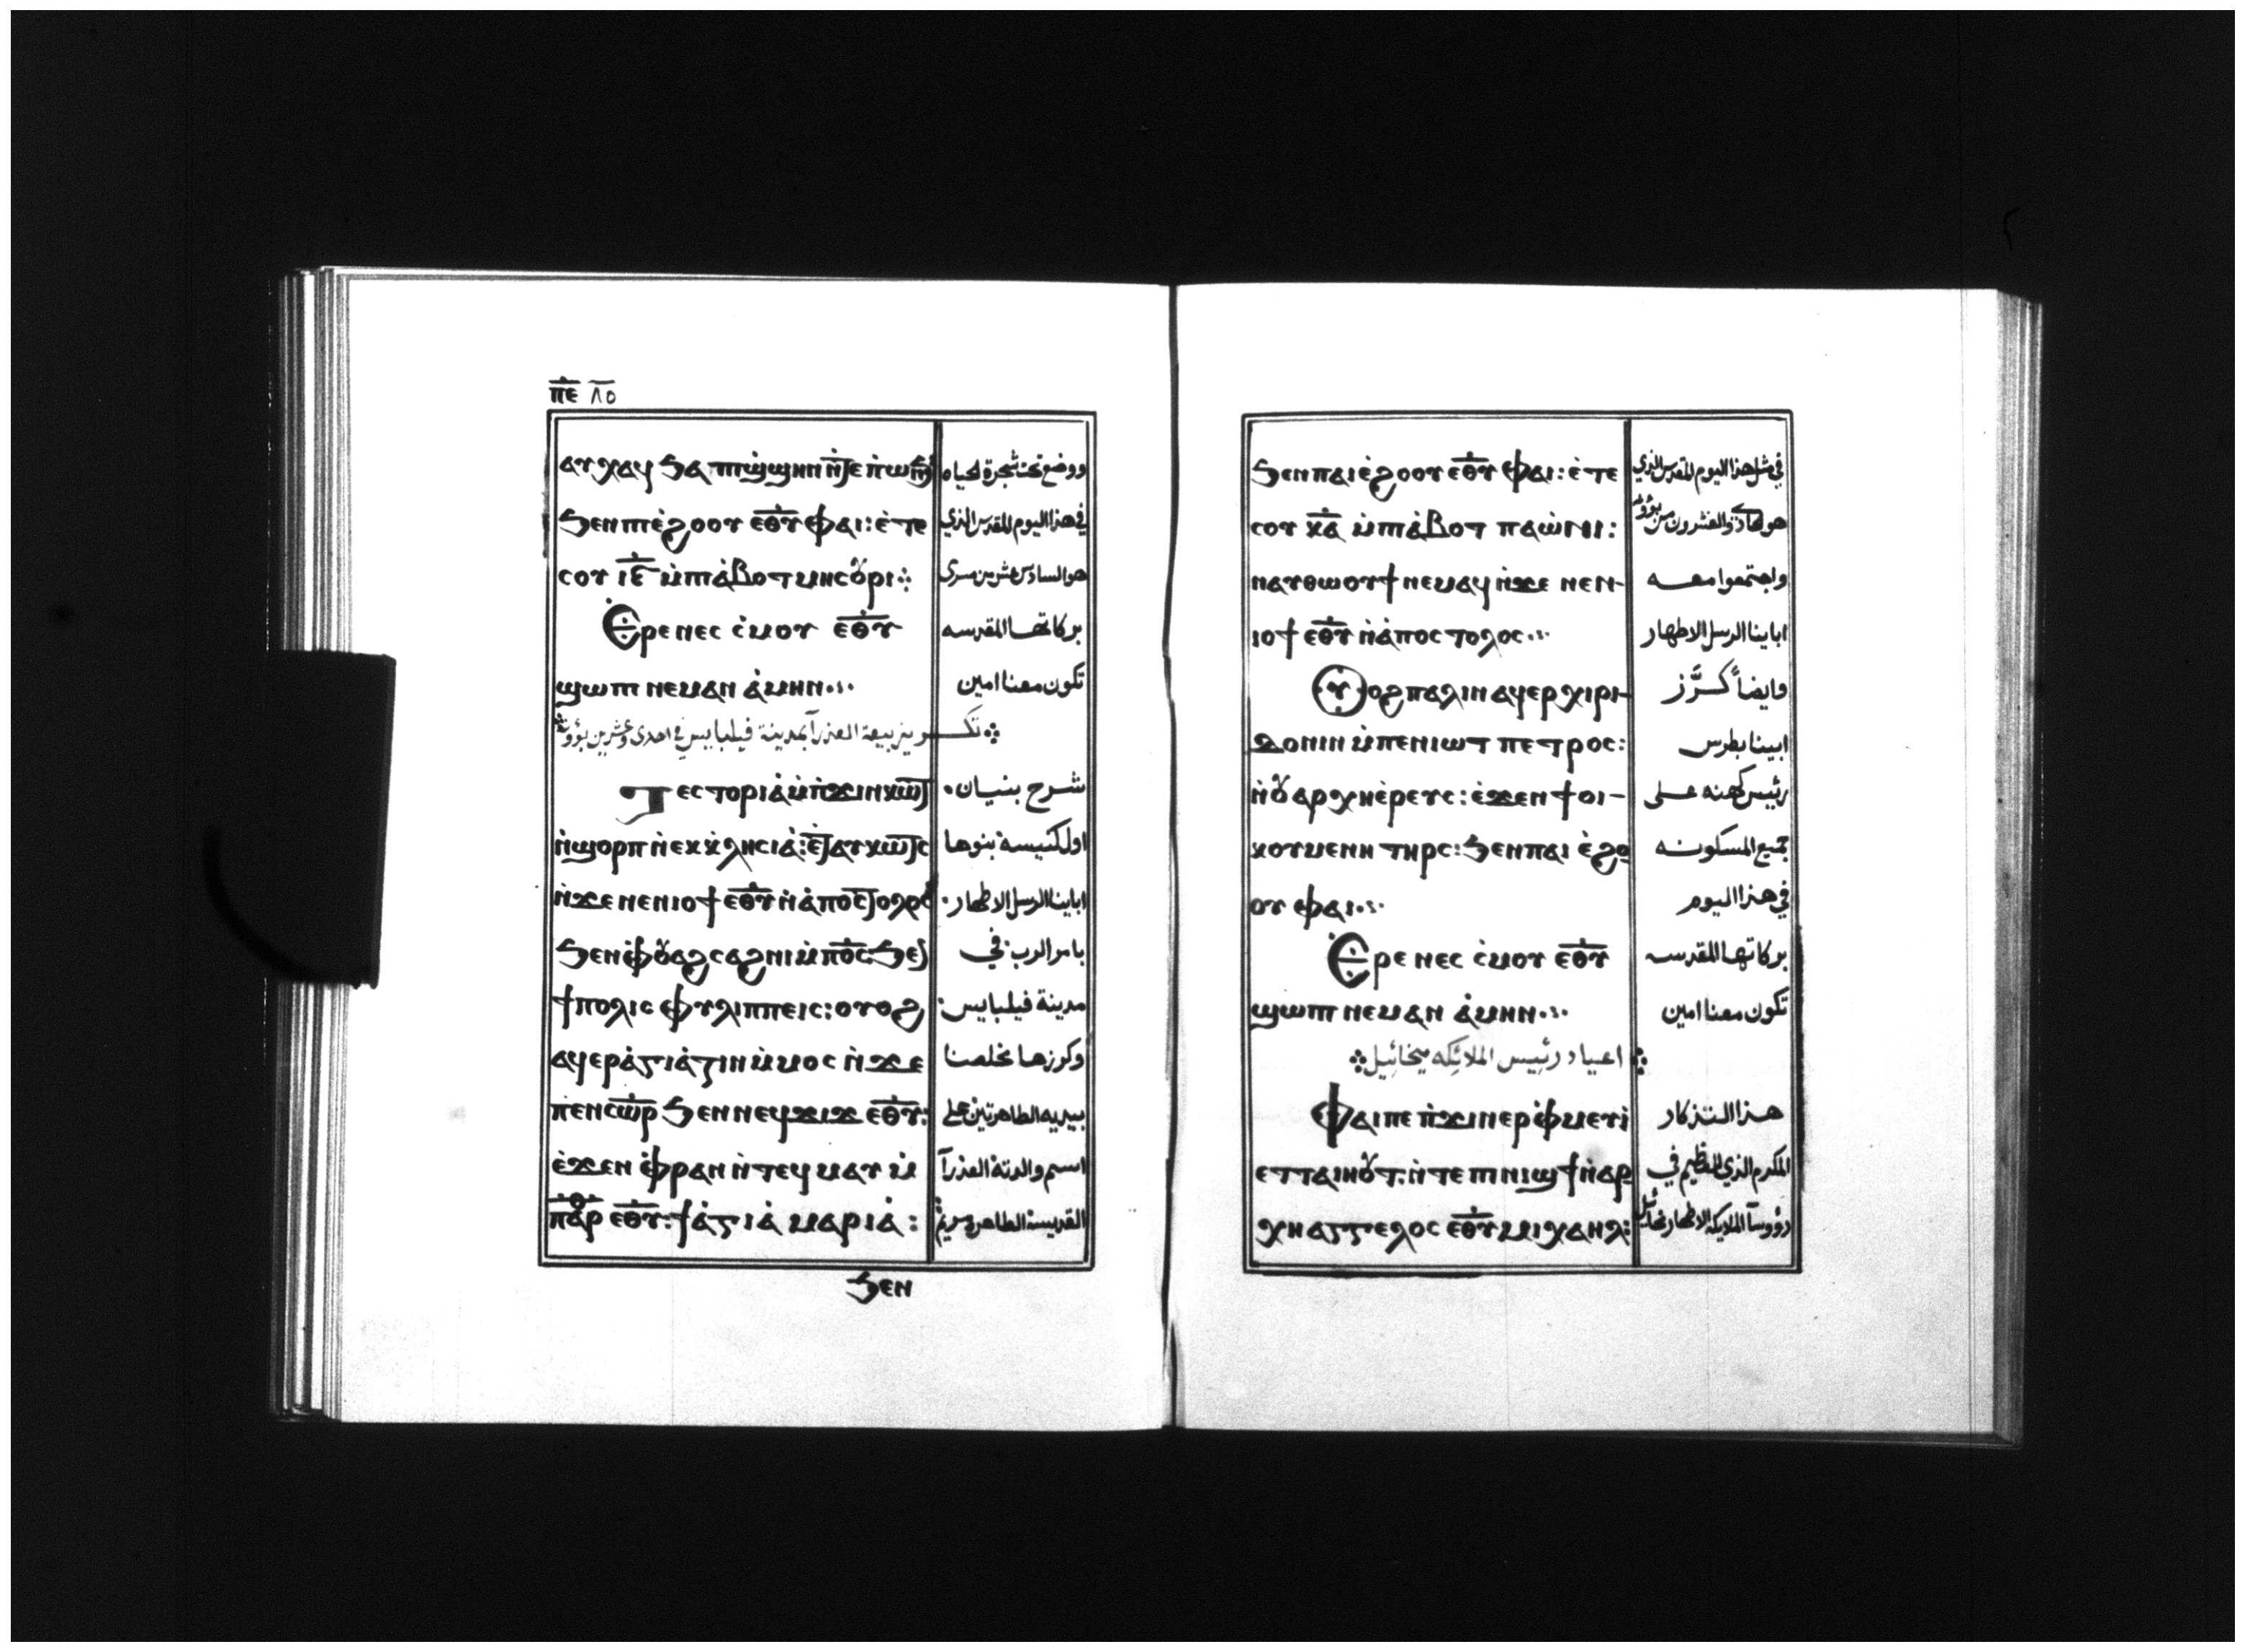 ⲡ̅ⲉ̅ ٨٥
ⲁⲩⲭⲁϥ ϧⲁ ⲡⲓϣ̀ϣⲏⲛ ⲛ̀ⲧⲉ ⲡ̀ⲱⲛϧ ووضع تحت شجرة الحياه
ϧⲉⲛ ⲡⲓⲉ̀ϩⲟⲟⲩ ⲉ̅ⲑ̅ⲩ̅ ⲫⲁⲓ: ⲉ̀ⲧⲉ في هذا اليوم المقدس الذي
ⲥⲟⲩ ⲓ̅ⲋ̅ ⲙ̀ⲡⲓⲁ̀ⲃⲟⲧ ⲙⲏⲥⲟⲩⲣⲓ هو السادس عشر من مسرى
Ⲉⲣⲉ ⲛⲉⲥ ⲥ̀ⲙⲟⲩ ⲉ̅ⲑ̅ⲩ̅ بركاتها المقدسه
ϣⲱⲡⲓ ⲛⲉⲙⲁⲛ ⲁ̀ⲙⲏⲛ تكون معنا امين
تكوين بيعة العذرآ بمدينة فيلبايس في احدى وعشرين بؤونه
ⲓⲥⲧⲟⲣⲓⲁ̀ ⲙ̀ⲡ̀ϫⲓⲛⲕⲱϯ شرح بنيان
ⲛ̀ϣⲟⲣⲡ ⲛ̀ⲉⲕⲕ̀ⲗⲏⲥⲓⲁ̀: ⲉ̀ⲧⲁⲩⲕⲱⲧⲥ اول كنيسة بنوها
ⲛ̀ϫⲉ ⲛⲉⲛⲓⲟϯ ⲉ̅ⲑ̅ⲩ̅ ⲛ̀ⲁ̀ⲡⲟⲥⲧⲟⲗⲟⲥ اباينا الرسل الاطهار
ϧⲉⲛ ⲫ̀ⲟⲩⲁϩⲥⲁϩⲛⲓ ⲙ̀ⲡ̅ⲟ̅ⲥ̅: ϧⲉⲛ بامر الرب في
ϯⲡⲟⲗⲓⲥ ⲫⲩⲗⲓⲡⲡⲉⲓⲥ: ⲟⲩⲟϩ مدينة فيلبايس
ⲁϥⲉⲣⲁ̀ⲅⲓⲁ̀ⲍⲓⲛ ⲙ̀ⲙⲟⲥ ⲛ̀ϫⲉ وكرزها مخلصنا
ⲡⲉⲛⲥ̅ⲱ̅ⲣ̅ ϧⲉⲛ ⲛⲉϥϫⲓϫ ⲉ̅ⲑ̅ⲩ̅: بيديه الطاهرتين على
ⲉ̀ϫⲉⲛ ⲫ̀ⲣⲁⲛ ⲛ̀ⲧⲉϥⲙⲁⲩ ⲙ̀ اسم والدته العذرآ
ⲡⲁⲣ ⲉ̅ⲑ̅ⲩ̅: ϯⲁ̀ⲅⲓⲁ̀ ⲙⲁⲣⲓⲁ̀: القديسة الطاهره مريم
ϧⲉⲛ
ϧⲉⲛ ⲡⲁⲓⲉ̀ϩⲟⲟⲩ ⲉ̅ⲑ̅ⲩ̅ ⲫⲁⲓ: ⲉ̀ⲧⲉ في مثل هذا اليوم المقدس الذي
ⲥⲟⲩ ⲕ̅ⲁ̅ ⲙ̀ⲡⲓⲁ̀ⲃⲟⲧ ⲡⲁⲱ̀ⲛⲓ: هو الحادي والعشرون من بؤونه
ⲛⲁⲩⲑⲱⲟⲩϯ ⲛⲉⲙⲁϥ ⲛ̀ϫⲉ ⲛⲉⲛ- واجتمعوا معه
ⲓⲟϯ ⲉ̅ⲑ̅ⲩ̅ ⲛ̀ⲁ̀ⲡⲟⲥⲧⲟⲗⲟⲥ اباينا الرسل الاطهار
Ⲩⲟϩ ⲡⲁⲗⲓⲛ ⲁϥⲉⲣⲭⲓⲣⲓ- وايضاً كرَّز
ⲇⲟⲛⲓⲛ ⲙ̀ⲡⲉⲛⲓⲱⲧ ⲡⲉⲧⲣⲟⲥ: ابينا بطرس
ⲛ̀ⲟⲩⲁⲣⲭⲏⲉ̀ⲣⲉⲩⲥ: ⲉ̀ϫⲉⲛ ϯⲟⲓ- رئيس كهنه على
ⲕⲟⲩⲙⲉⲛⲏ ⲧⲏⲣⲥ: ϧⲉⲛ ⲡⲁⲓ ⲉ̀ϩⲟ جميع المسكونه
ⲟⲩ ⲫⲁⲓ في هذا اليوم
Ⲉⲣⲉ ⲛⲉⲥ ⲥ̀ⲙⲟⲩ ⲉ̅ⲑ̅ⲩ̅ بركاتها المقدسه
ϣⲱⲡⲓ ⲛⲉⲙⲁⲛ ⲁ̀ⲙⲏⲛ تكون معنا امين
اعياد رئيس الملائكه ميخائيل
Ⲫⲁⲓ ⲡⲉ ⲡ̀ϫⲓⲛⲉⲣⲫ̀ⲙⲉⲩⲓ̀ هذا التذكار
ⲉⲧⲧⲁⲓⲏⲟⲩⲧ: ⲛ̀ⲧⲉ ⲡⲓⲛⲓϣϯ ⲛ̀ⲁⲣ المكرم الذي للعظيم في
ⲭⲏⲁⲅⲅⲉⲗⲟⲥ ⲉ̅ⲑ̅ⲩ̅ ⲙⲓⲭⲁⲏⲗ: رؤوسآ الملايكه الاطهار ميخائيل